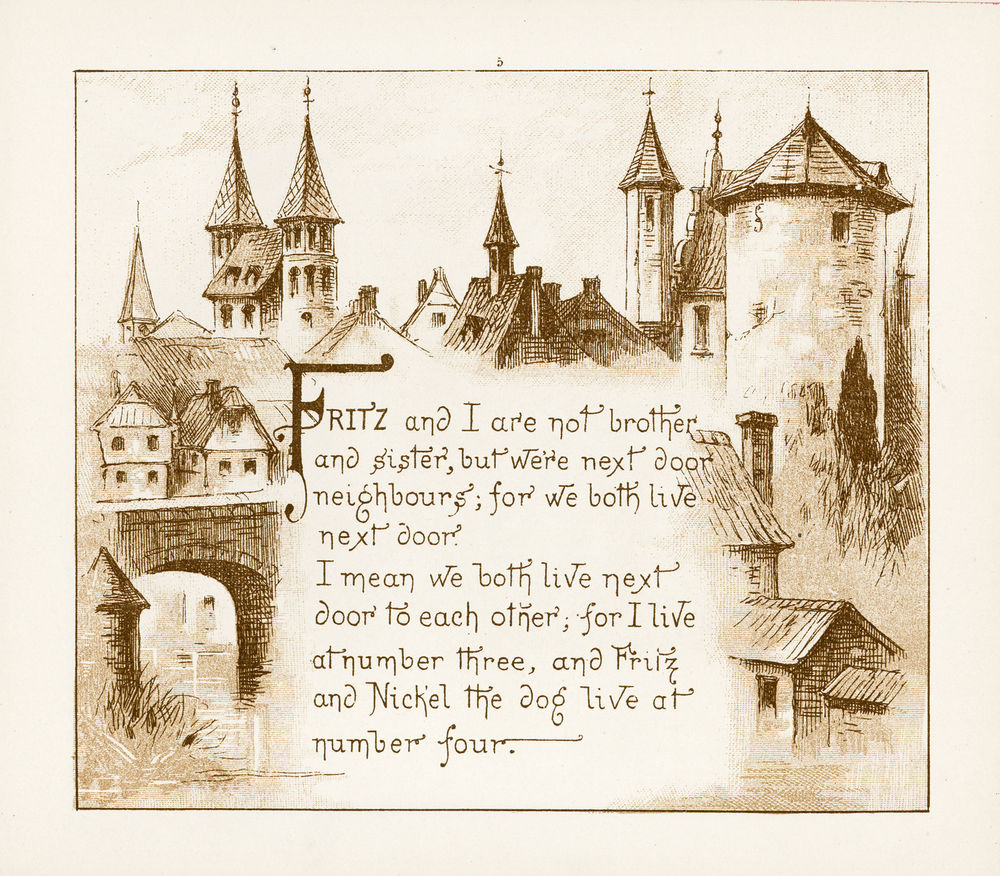 5
FRITZ and I are not brother
and sister, but we're next door
neighbours; for we both live
next door.
I mean we both live next
door to each other; for I live
at number three, and Fritz
and Nickel the dog live at
number four.